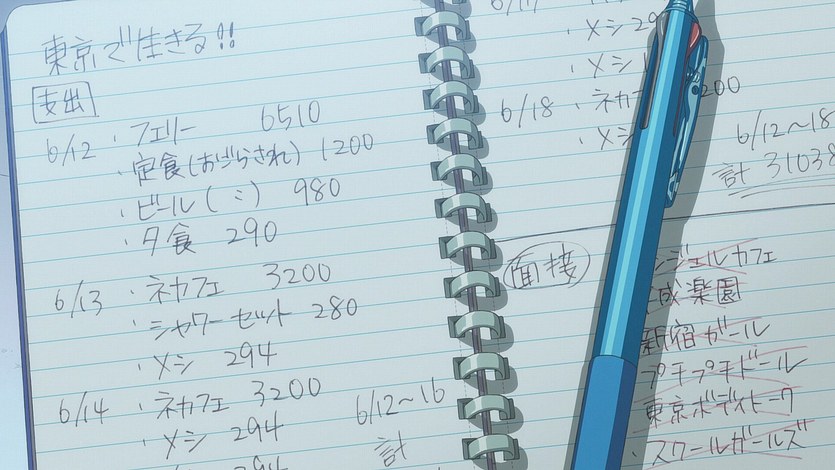 東京で生きる!!
支出
6/12 ・フェリー 6510
・定食(おごらされ) 1200
・ビール(〃) 980
・夕食 290
6/13 ・ネカフェ 3200
・シャワーセット 280
・メシ 294
6/14 ・ネカフェ 3200
・メシ 294
6/12〜16
計
・メシ
・メシ
6/18 ・ネカフ
・メシ
6/12〜18
計 31038
面接
ジェルカフェ
楽園
新宿ガール
プチプチドール
東京ボディトーク
・スクールガールズ